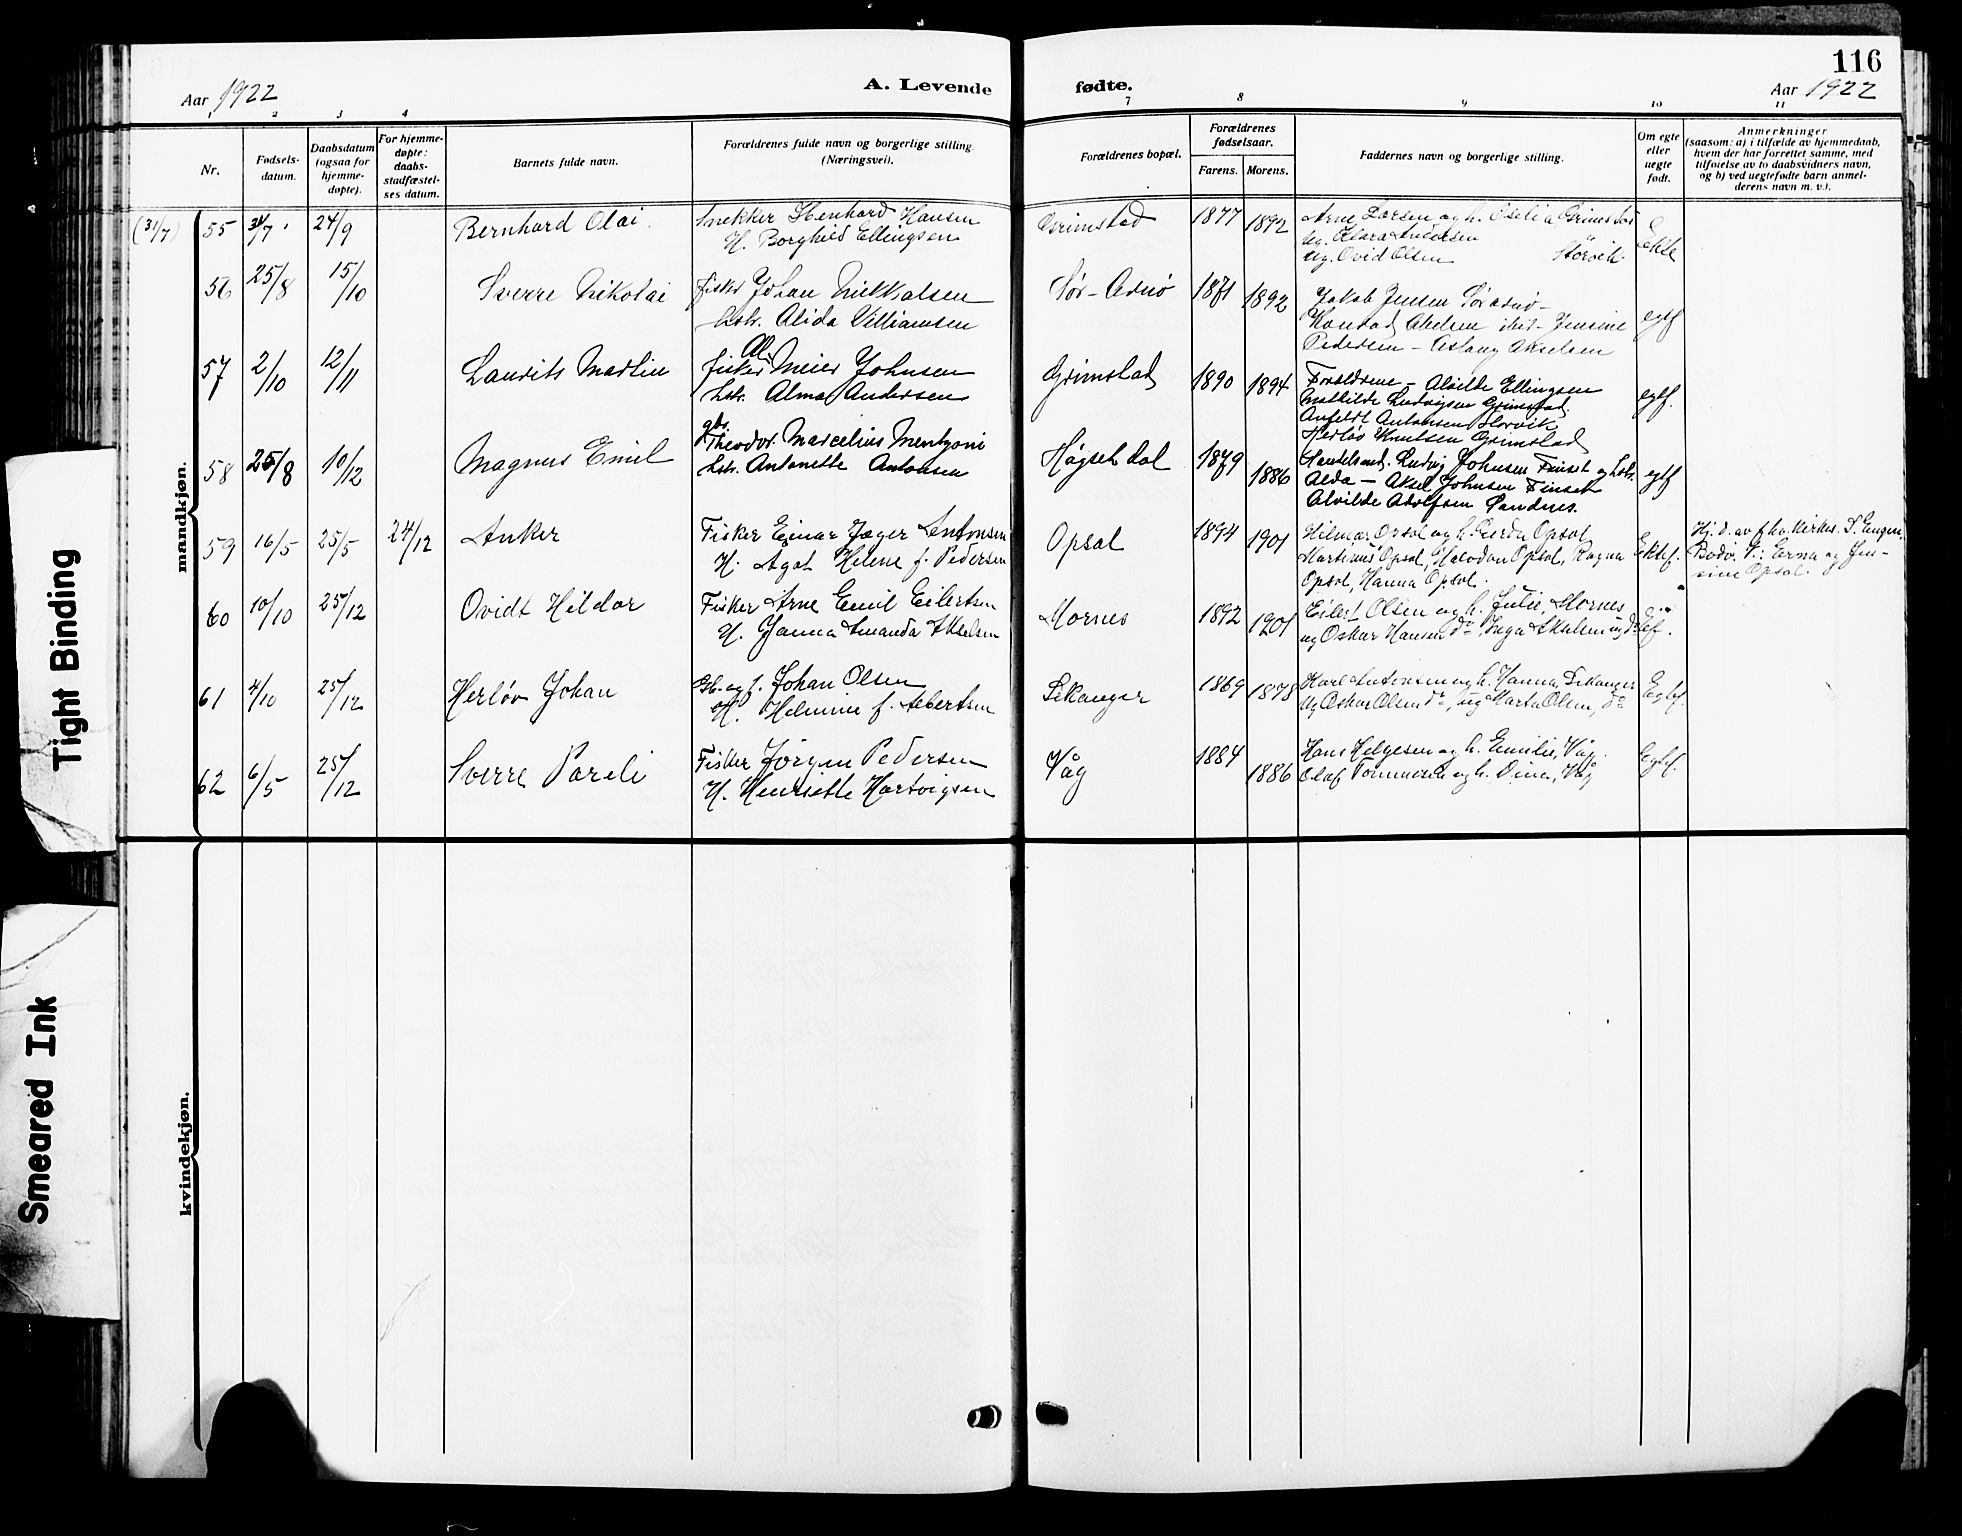 116
Aar 1922
A. Levende fødte.
Aar 1922
1 2 3 4 7 8 9 10 11
Nr.
Fødsels-
datum.
Daabsdatum
(ogsaa for
hjemme-
døpte).
For hjemme-
døpte:
daabs-
stadfæstel-
ses datum.
Barnets fulde navn.
Forældrenes fulde navn og borgerlige stilling
(Næringsvei).
Forældrenes bopæl.
Forældrenes
fødselsaar.
Farens. Morens.
Faddernes navn og borgerlige stilling.
Om egte
eller
uegte
født.
Anmerkninger
(saasom: a) i tilfælde av hjemmedaab,
hvem der har forrettet samme, med
tilføielse av to daabsvidners navn,
og b) ved uegtefødte barn anmel-
derens navn m. v.).
mandkjøn.
(31/7) 55 31/7 24/9 Bernhard Olai. Snekker Stenhard Hansen Grimstad 1877 1892 Arne Larsen og h. Oselia Grimstad Ekte
H. Borghild Ellingsen
Ug. Klara Andersen
Ug. Ovid Olsen Størvik
56 25/8 15/10 Sverre Nikolai fisker Johan Mikkalsen Sør-Arnø 1871 1892 Jakob Jensen Sørarnø- egtf
hstr. Alida Villiamsen
Konrad Abelsen ibid- Jensine
Pedersen - Aslaug Akselsen
57 2/10 12/11 Laurits Martin fisker Al. Meier Johnsen Grimstad 1890 1894 Forældrene - Alvilde Ellingsen egtf.
hstr. Alma Andersen
Mathilde Ludvigsen Grimstad.
Anfeldt Antonsen Storvik
Herløv Knutsen Grimstad
58 25/8 10/12 Magnus Emil gbr. Theodor Marcelius Mentzoni Høgsetdal 1879 1886 Handelsmd. Ludvig Johnsen Finset og hstr. egtf
hstr. Antonette Antonsen
Alda - Aksel Johnsen Finset
Alvilde Adolfsen Sandnes.
59 16/5 25/5 24/12 Anker Fisker Einar Jæger Antonsen Opsal 1894 1901 Hilmar Opsal og h. Gerda Opsal Ektef.
H. Agot Helene f. Pedersen
Martinus Opsal, Halvdan Opsal, Ragna
Opsal, Hanna Opsal.
Hj. d. av fhv. kirkes. S. Eugen.
Bodø. V: Erna og Jen-
sine Opsal.
60 10/10 25/12 Ovidt Hildor Fisker Arne Emil Eilertsen Mornes 1892 1901 Eilert Olsen og h. Julie, Mornes
H. Hanna Amanda Akselsen
ug Oskar Hansen do, Inga Akselsen ug do
61 4/10 25/12 Herløv Johan Gb. og f. Johan Olsen Likanger 1869 1878 Karl Antonsen og h. Hanna Likanger Egtef.
H. Helmine f. Albertsen
Ug Oskar Olsen do, ug Marta Olsen, do
62 6/5 25/12 Sverre Pareli Fisker Jørgen Pedersen Våg 1884 1886 Hans Helgesen og h. Emilie, Våg. Egtef.
H. Henriette Hartvigsen
Olaf Tommesen og h. Dina, Våg
kvindekjøn.
Tight Binding
Smeared Ink